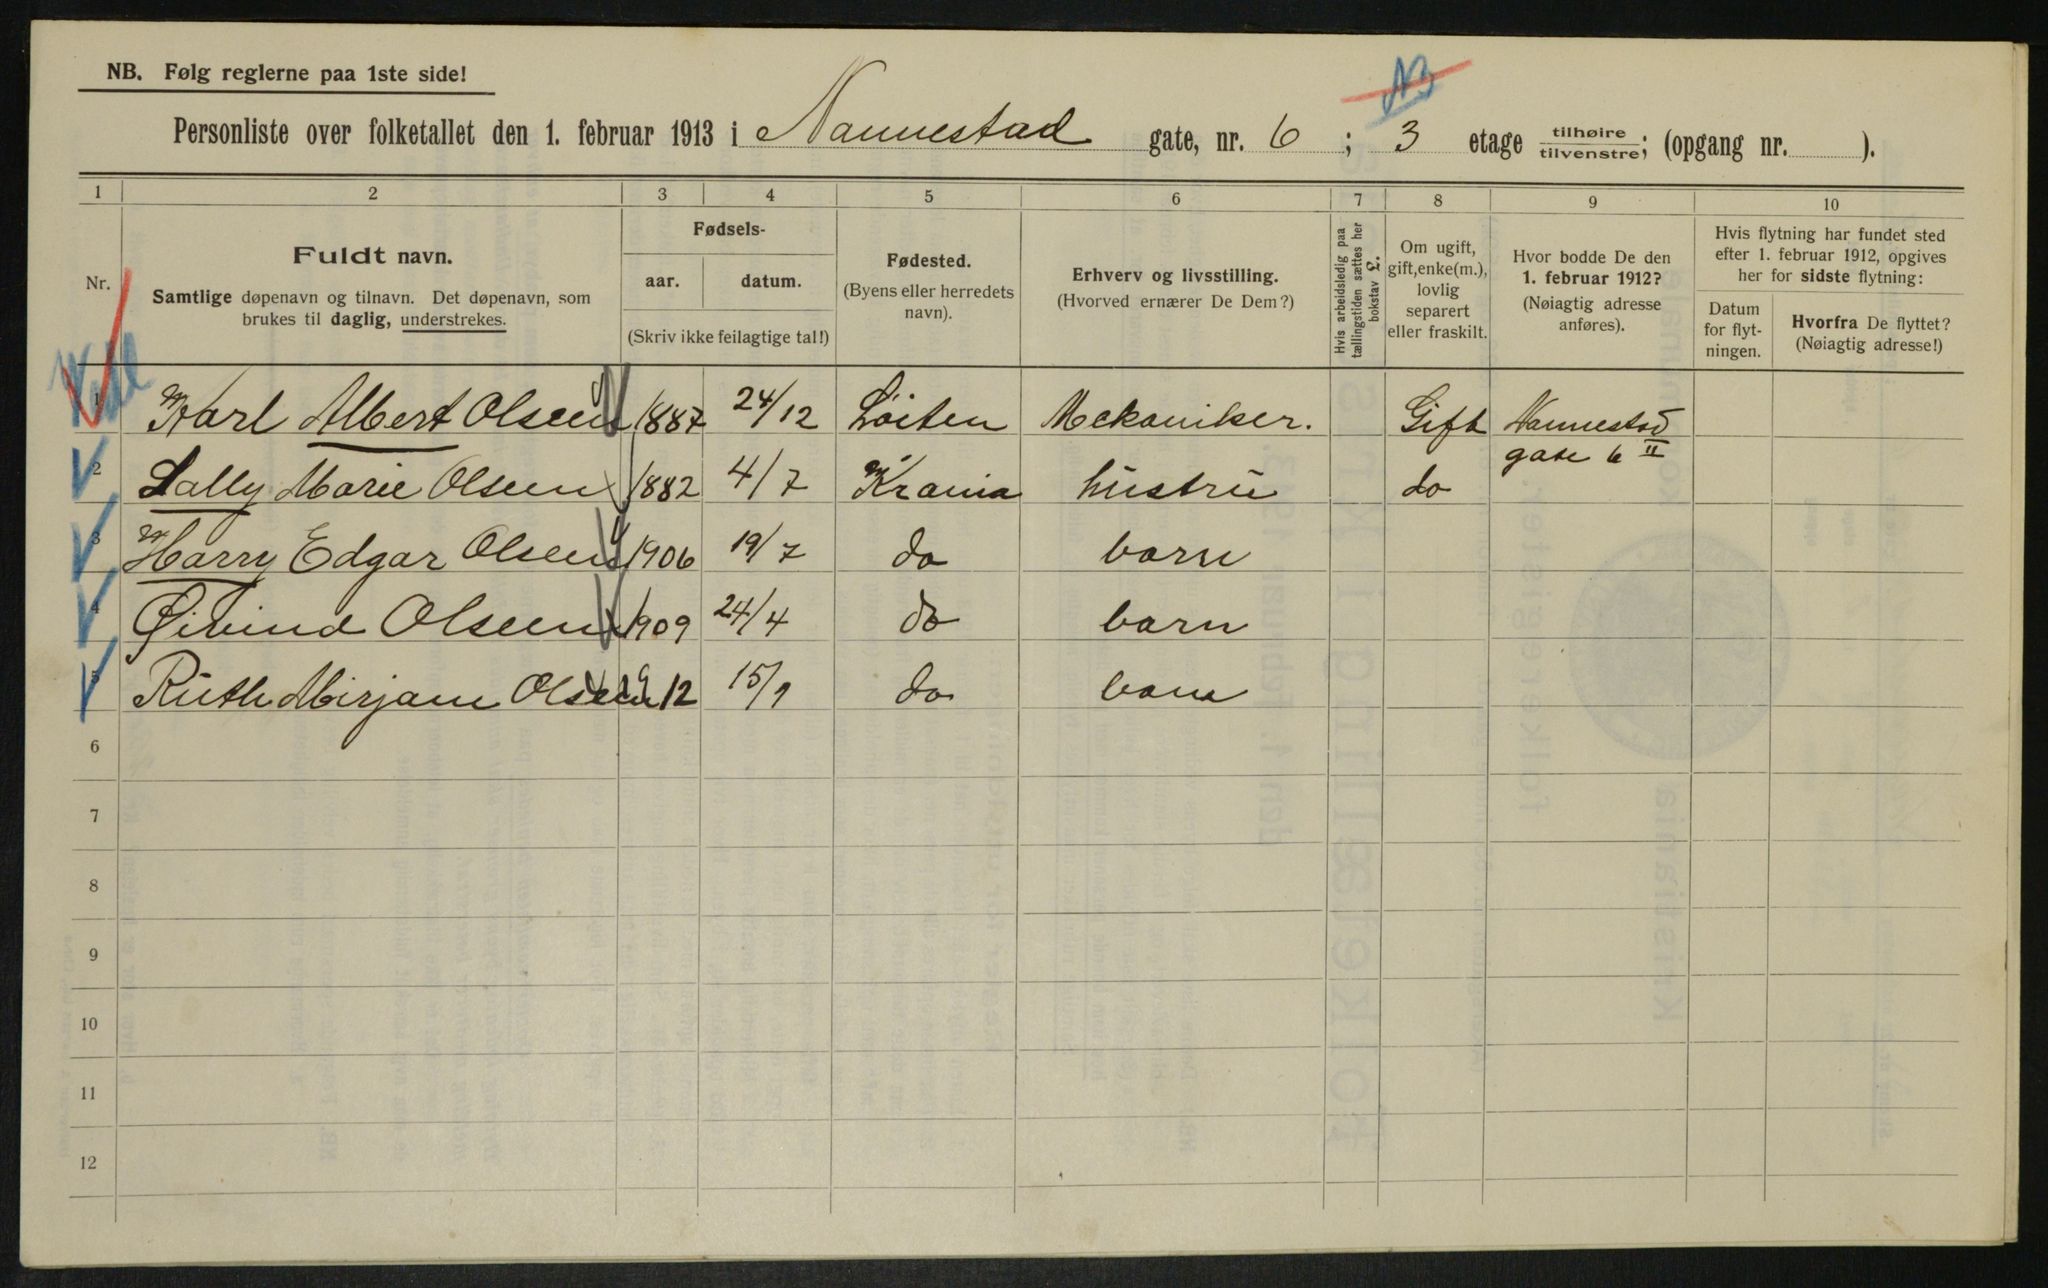 NB. Følg reglerne paa 1ste side!
NB
Personliste over folketallet den 1. februar 1913 i Nannestad gate, nr. 6 ; 3 etage tilhøire/tilvenstre; (opgang nr. ).
1 2 3 4 5 6 7 8 9 10
Nr.
Fuldt navn.
Samtlige døpenavn og tilnavn. Det døpenavn, som
brukes til daglig, understrekes.
Fødsels-
aar. datum.
(Skriv ikke feilagtige tal!)
Fødested.
(Byens eller herredets
navn).
Erhverv og livsstilling.
(Hvorved ernærer De Dem?)
Hvis arbeidsledig paa
tællingstiden sættes her
bokstav L.
Om ugift,
gift, enke(m.),
lovlig
separert
eller fraskilt.
Hvor bodde De den
1. februar 1912?
(Nøiagtig adresse
anføres).
Hvis flytning har fundet sted
efter 1. februar 1912, opgives
her for sidste flytning:
Datum
for flyt-
ningen.
Hvorfra De flyttet?
(Nøiagtig adresse!)
1 Karl Albert Olsen 1887 24/12 Löiten Mekaniker. Gift Nannestad
gate 6 II
2 Sally Marie Olsen 1882 4/7 Krania hustru do
3 Harry Edgar Olsen 1906 19/7 do barn
4 Øivind Olsen 1909 24/4 do barn
5 Ruth Mirjam Olsen 1912 15/9 do barn
6
7
8
9
10
11
12